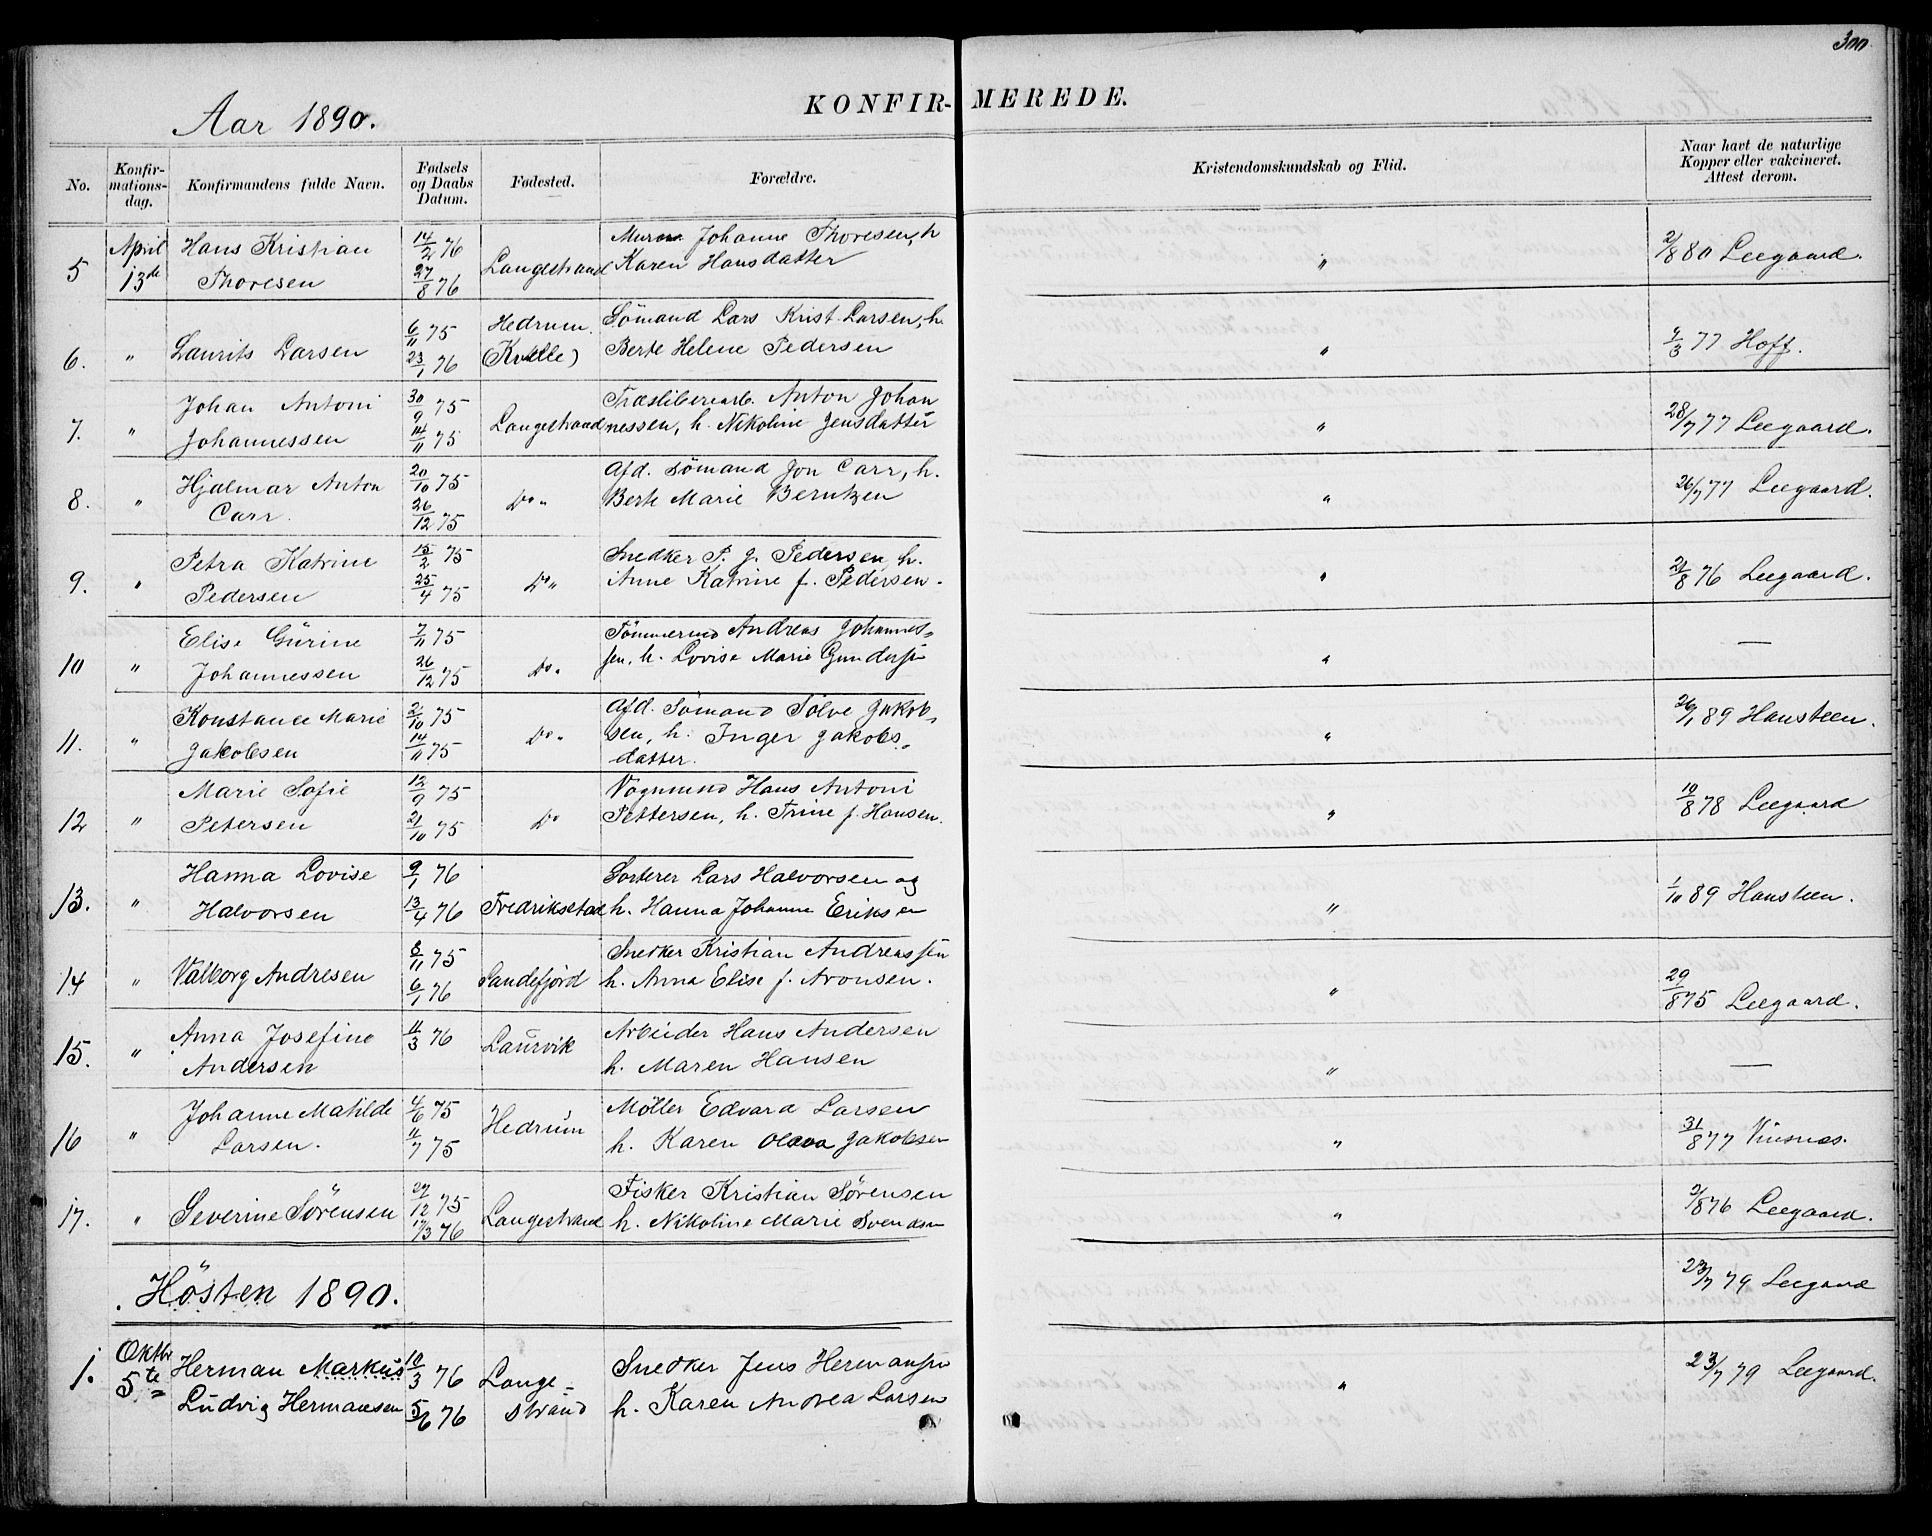 300
Aar 1890.
KONFIR-MEREDE.
No.
Konfir-
mations-
dag.
Konfirmandens fulde Navn.
Fødsels
og Daabs
Datum.
Fødested.
Forældre.
Kristendomskundskab og Flid.
Naar havt de naturlige
Kopper eller vakcineret.
Attest derom.
5 April 13de Hans Kristian 14/2 76 Langestrand Murer Johanne Thoresen, h
Thoresen 27/8 76 Karen Hansdatter " 2/8 80 Leegaard.
6. " Laurits Larsen 6/11 75 Hedrum. Sømand Lars Krist. Larsen, h.
23/1 76 (Kvelle) Berte Helene Pedersen " 9/3 77 Hoff.
7. " Johan Antoni 30/9 75 Langestrand Træsliberiarb. Anton Johan
Johannessen 14/11 75 nessen, h. Nikoline Jensdatter " 28/7 77 Leegaard.
8. " Hjalmar Anton 20/10 75 Do " Afd. Sømand Jon Carr, h.
Carr. 26/12 75 Berte Marie Berntzen " 26/7 77 Leegaard.
9. " Petra Katrine 15/2 75 Do " Snedker P. J. Pedersen, h.
Pedersen 25/4 75 Anne Katrine f. Pedersen. " 21/8 76 Leegaard.
10 " Elise Gurine 7/11 75 Do " Tømmermd Andreas Johannes-
Johannessen 26/12 75 sen, h. Lovise Marie Gundersen " —
11. " Konstance Marie 2/10 75 Do " Afd. Sømand Sølve Jakob-
Jakobsen 14/11 75 sen, h. Inger Jakobs- " 26/1 89 Hansteen.
datter.
12 " Marie Sofie 12/9 75 Do Vognmand Hans Antoni
Petersen 21/10 75 Pettersen, h. Trine f. Hansen. " 10/8 78 Leegaard
13. " Hanna Lovise 9/1 76 Fredrikstad Sorterer Lars Halvorsen og
Halvorsen 13/4 76 h. Hanna Johanne Eriksen " 1/10 89 Hansteen.
14 " Valborg Andresen 8/11 75 Sandefjord Snedker Kristian Andreassen
6/1 76 h. Anna Elise f. Aronsen. " 29/8 75 Leegaard.
15. " Anna Josefine 11/3 76 Laurvik Arbeider Hans Andersen
Andersen h. Maren Hansen " —
16 " Johanne Matilde 4/6 75 Hedrum Møller Edvard Larsen
Larsen. 11/7 75 h. Karen Olava Jakobsen " 31/8 77 Vinsnæs.
17. " Severine Sørensen 27/12 75 Langestrand Fisker Kristian Sørensen
17/3 76 h. Nikoline Marie Svendsen " 2/8 76 Leegaard.
Høsten 1890. 23/7 79 Leegaard
1. Oktbr 5te Herman Markus 10/3 76 Lange- Snedker Jens Hermansen
Ludvig Hermansen 5/6 76 strand h. Karen Andrea Larsen " 23/7 79 Leegaard.